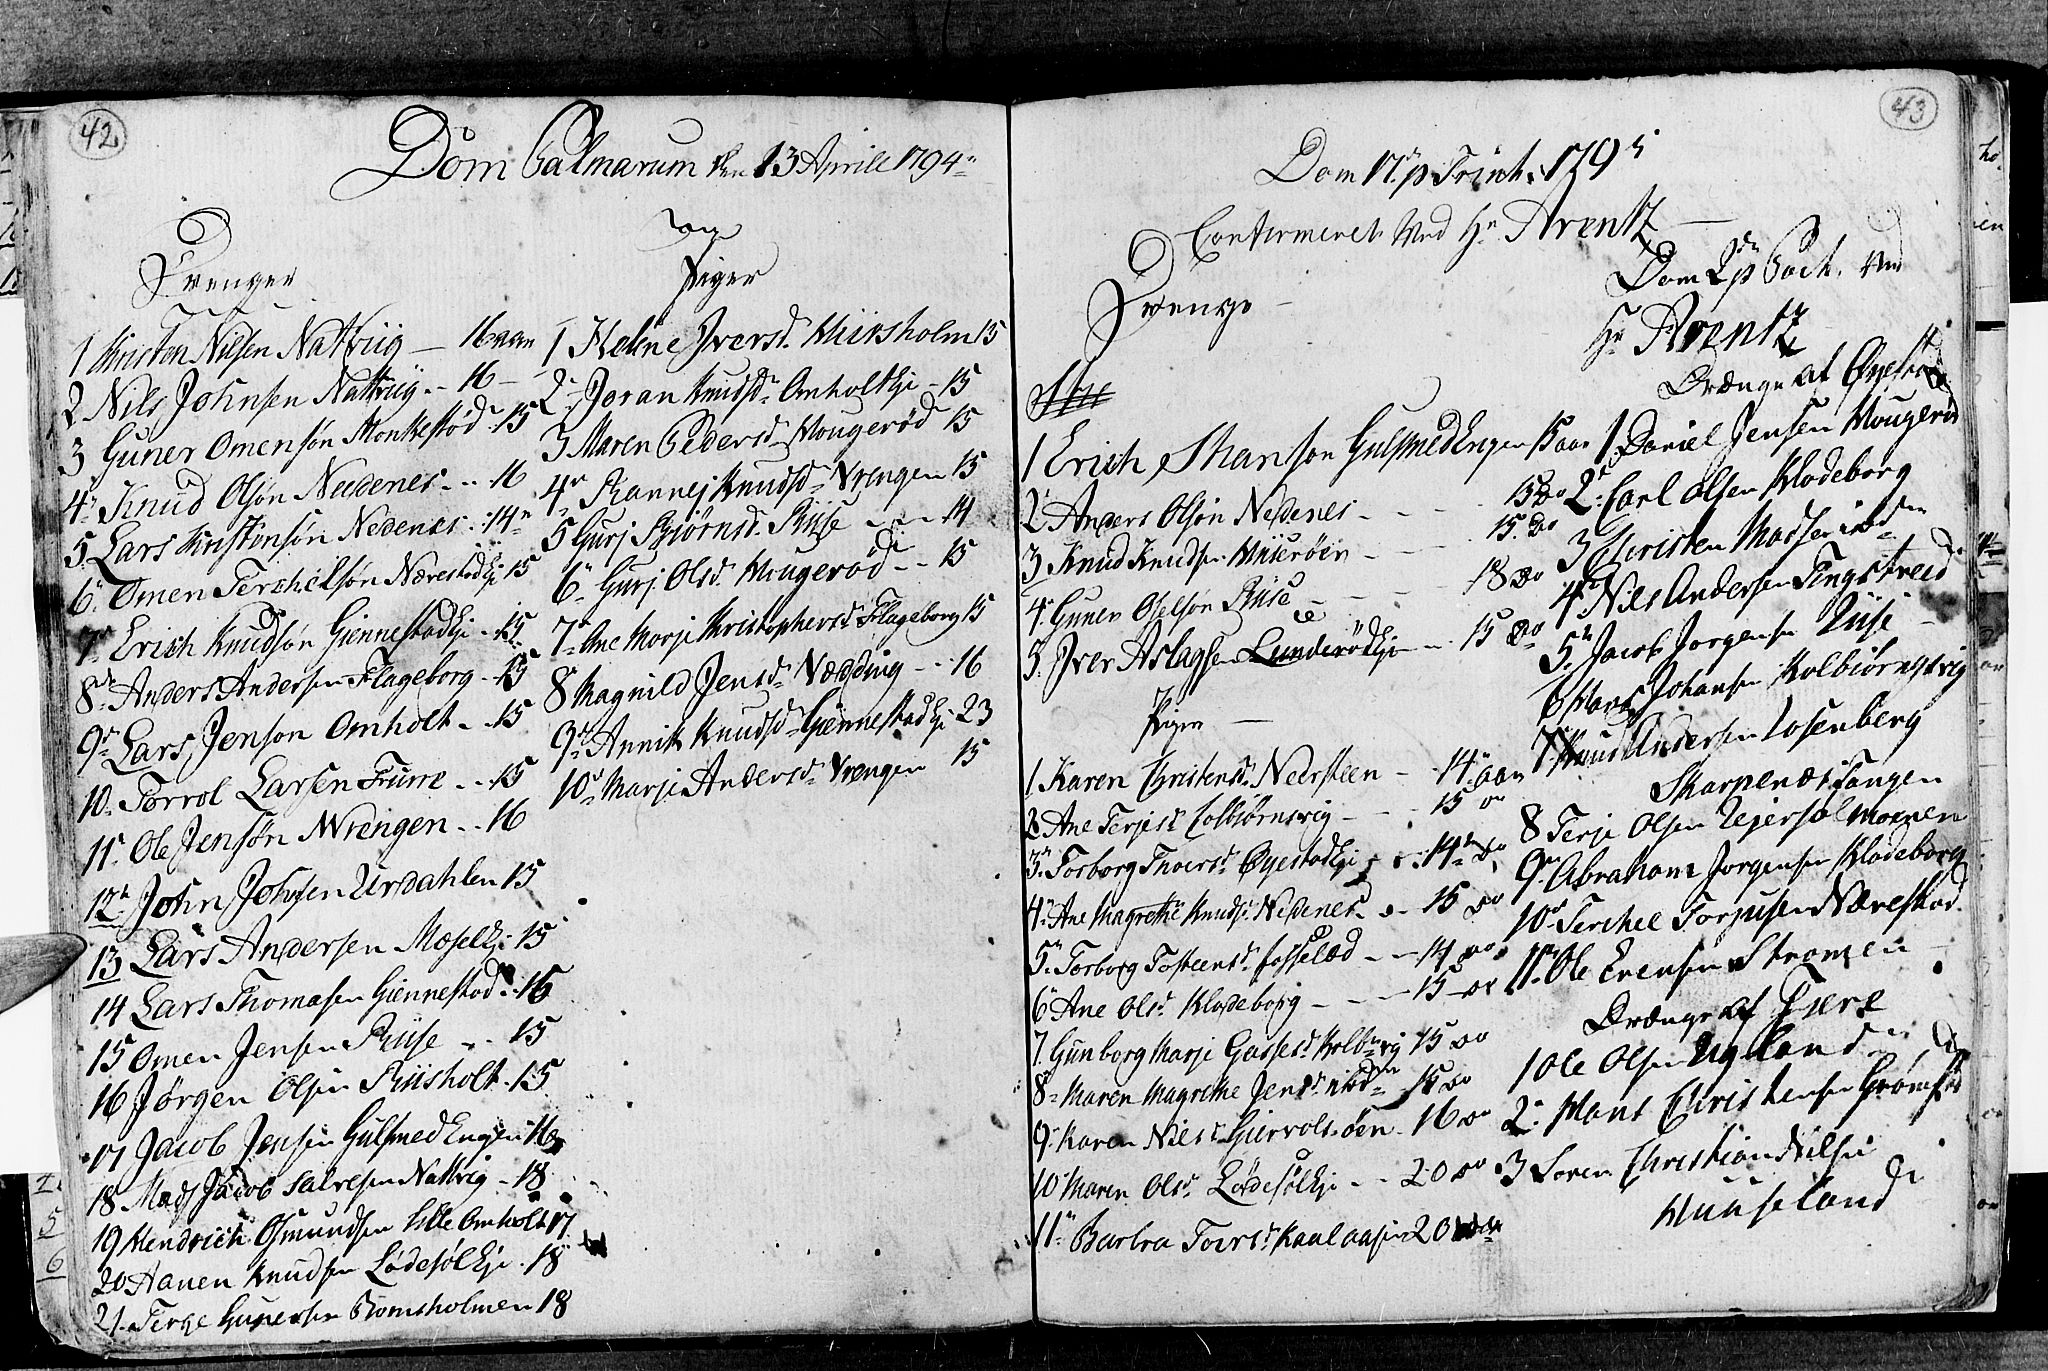 42
Dom Palmarum den 13 Aprile 1794
Drenger
1 Kristen Nilsen Natviig — 16 aar
2 Nils Johnsen Natviig - 16 -
3 Guner Omensøn Monkestød - 15
4 Knud Olsøn Nedenes - - 16
5 Lars Kristensøn Nedenes - 14
6 Omen Terchelsøn Nærestadkji 15
7 Erich Knudsøn Giennestadkji - 15
8 Anders Andersen Flageborg - 15
9 Lars Jenson Omholt - - 15
10 Torrol Larsen Frurre - - 15
11 Ole Jensøn Wrengen - - 16
12 John Johnsen Urdahlen 15
13 Lars Andersen Moselkji 15
14 Lars Thomasen Giennestad - 16
15 Omen Jensen Riise - - 15
16 Jørgen Olsen Riisholt - 15
17 Jacob Jensen Gulsmed Engen 16
18 Mads Jacob Salvesen Natvig - 18
19 Hendrich Osmundsen Lille Omholt 17
20 Haven Knudsen Lødesølkji - 18
21 Terge Gunersen Romsholmen 18
og
Piger
1 Helne Iversd. Hiirsholm 15
2 Joran Knudsd. Omholtkji - 15
3 Maren Pedersd. Hougerød 15
4 Rannej Knudsd. Vrengen 15
5 Gurj Biørnsd. Riise - - - 14
6 Gurj Olsd. Hougerød - - 15
7 Ane Marje Kristophersd. Flageborg 15
8 Magnild Jensd. Nædding - - 16
9 Annik Knudsd. Giennestadkji 23
10 Marje Andersd. Vrengen 15
43
Dom 17 p Trinit. 1795
Confirmeret Ved Hr Arentz —
Drenge -
1 Erich Hanson Gulsmed Engen 15 aar
2 Anders Olsøn Nedenes - - - - 15 Do
3 Knud Knudsen Miserøen - - - 15 Do
4 Guner Oselsøn Riise - - - - 18 Do
5 Iver Aslagsen Lunderødkji - - 15 Do
Piger —
1 Karen Christensd. Nedrsteen - 14 aar
2 Ane Terjesd. Colbiørnsvig - - - 15 Do
3 Torborg Thorsd. Øyestadkji - - 14 Do
4 Ane Magrethe Knudsd. Nedenes - - 15 Do
5 Torborg Tosteensd. Fosselæd - - 14 Do
6 Ane Olsd. Klodeborg - - - - 15 Do
7 Gunborg Marje Gassesd. Kolb:vig 15 Do
8 Maren Magrethe Jensd. ibd 15 Do
9 Karen Nilsd. Giervolsøen - 16 Do
10 Maren Olsd. Lødesølkji - - 20 Do
11 Barbra Torsd. Kaalaasen 20
Dom 2 p Pach. ved
Hr Arentz
Drænge af Øyestad
1 Daniel Jensen Hougerød
2 Carl Olsen Klodeborg
3 Christen Madsen ibd
4 Nils Andersen Tingstveid
5 Jacob Jorgensen Riise
6 Hans Johansen Kolbiørnsvig
7 Knud Andersen Losenberg
Skarpenæs Tangen
8 Terje Olsen Vejersølmoenen
9 Abraham Jorgensen Klodeborg
10 Terchel Torjusen Nærestad
11 Ole Evensen Stromen
Drænge af Fjære
1 Ole Olsen Ugland
2 Hans Christensen Grømstad
3 Soren Christian Nilsen
Huuseland